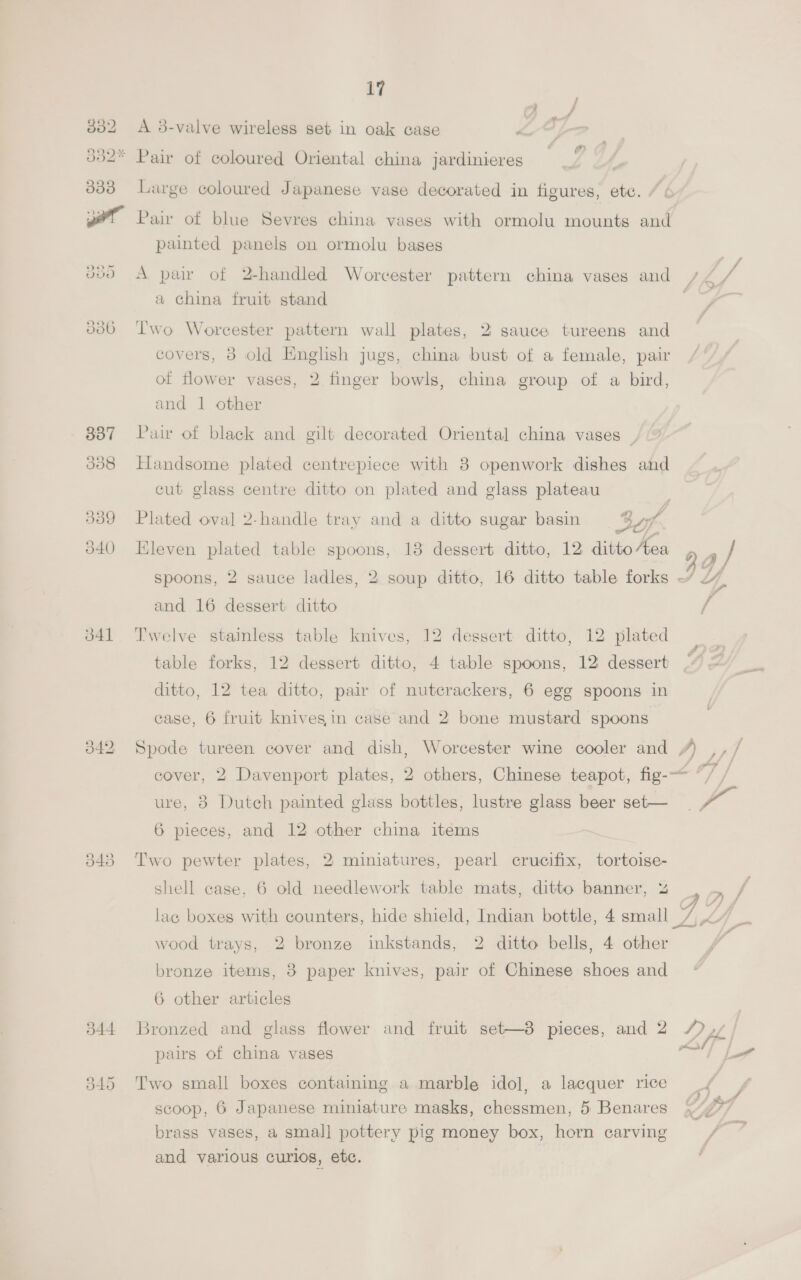 17
332 A 3-valve wireless set in oak case
332* Pair of coloured Oriental china jardinieres
333 Large coloured Japanese vase decorated in figures, etc.
Pair of blue Sevres china vases with ormolu mounts and
painted panels on ormolu bases
335 A pair of 2-handled Worcester pattern china vases and
a china fruit stand
336 Two Worcester pattern wall plates, 2 sauce tureens and
covers, 3 old English jugs, china bust of a female, pair
of flower vases, 2 finger bowls, china group of a bird,
and 1 other
337 Pair of black and gilt decorated Oriental china vases
338 Handsome plated centrepiece with 3 openwork dishes and
cut glass centre ditto on plated and glass plateau
339 Plated oval 2-handle tray and a ditto sugar basin
340 Eleven plated table spoons, 13 dessert ditto, 12 ditto tea
spoons, 2 sauce ladles, 2 soup ditto, 16 ditto table forks
and 16 dessert ditto
341 Twelve stainless table knives, 12 dessert ditto, 12 plated
table forks, 12 dessert ditto, 4 table spoons, 12 dessert
ditto, 12 tea ditto, pair of nutcrackers, 6 egg spoons in
case, 6 fruit knives in case and 2 bone mustard spoons
342 Spode tureen cover and dish, Worcester wine cooler and
cover, 2 Davenport plates, 2 others, Chinese teapot, fig-
ure, 3 Dutch painted glass bottles, lustre glass beer set—
6 pieces, and 12 other china items
343 Two pewter plates, 2 miniatures, pearl crucifix, tortoise-
shell case, 6 old needlework table mats, ditto banner, 2
lac boxes with counters, hide shield, Indian bottle, 4 small
wood trays, 2 bronze inkstands, 2 ditto bells, 4 other
bronze items, 3 paper knives, pair of Chinese shoes and
6 other articles
344 Bronzed and glass flower and fruit set—3 pieces, and 2
pairs of china vases
345 Two small boxes containing a marble idol, a lacquer rice
scoop, 6 Japanese miniature masks, chessmen, 5 Benares
brass vases, a small pottery pig money box, horn carving
and various curios, etc.